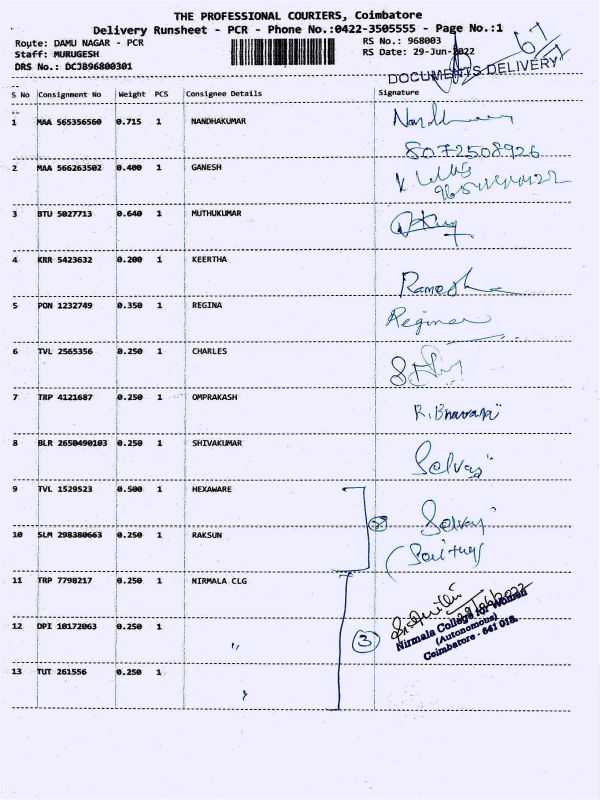 THE PROFESSIONAL COURIERS, Coimbatore
Delivery Runsheet - PCR - Phone No.:0422-3505555 - Page No.:1
Route: DAMU NAGAR - PCR
Staff: MURUGESH
DRS No.: DCJB96800301
RS No.: 968003
RS Date: 29-Jun-2022
67
DOCUMENTS DELIVERY
S No Consignment No Weight PCS Consignee Details Signature
1 MAA 565356560 0.715 1 NANDHAKUMAR
8072508926
2 MAA 566263502 0.400 1 GANESH
3 BTU 5027713 0.640 1 MUTHUKUMAR
4 KRR 5423632 0.200 1 KEERTHA
5 PON 1232749 0.350 1 REGINA Regina
6 TVL 2565356 0.250 1 CHARLES
7 TRP 4121687 0.250 1 OMPRAKASH
8 BLR 2650490103 0.250 1 SHIVAKUMAR Selvaj
9 TVL 1529523 0.500 1 HEXAWARE Selvaj
10 SLM 298380663 0.250 1 RAKSUN
11 TRP 7798217 0.250 1 NIRMALA CLG
29/06/2022
Nirmala College for Women
(Autonomous)
Coimbatore - 641 018.
12 DPI 10172063 0.250 1 "
3
13 TUT 261556 0.250 1 "